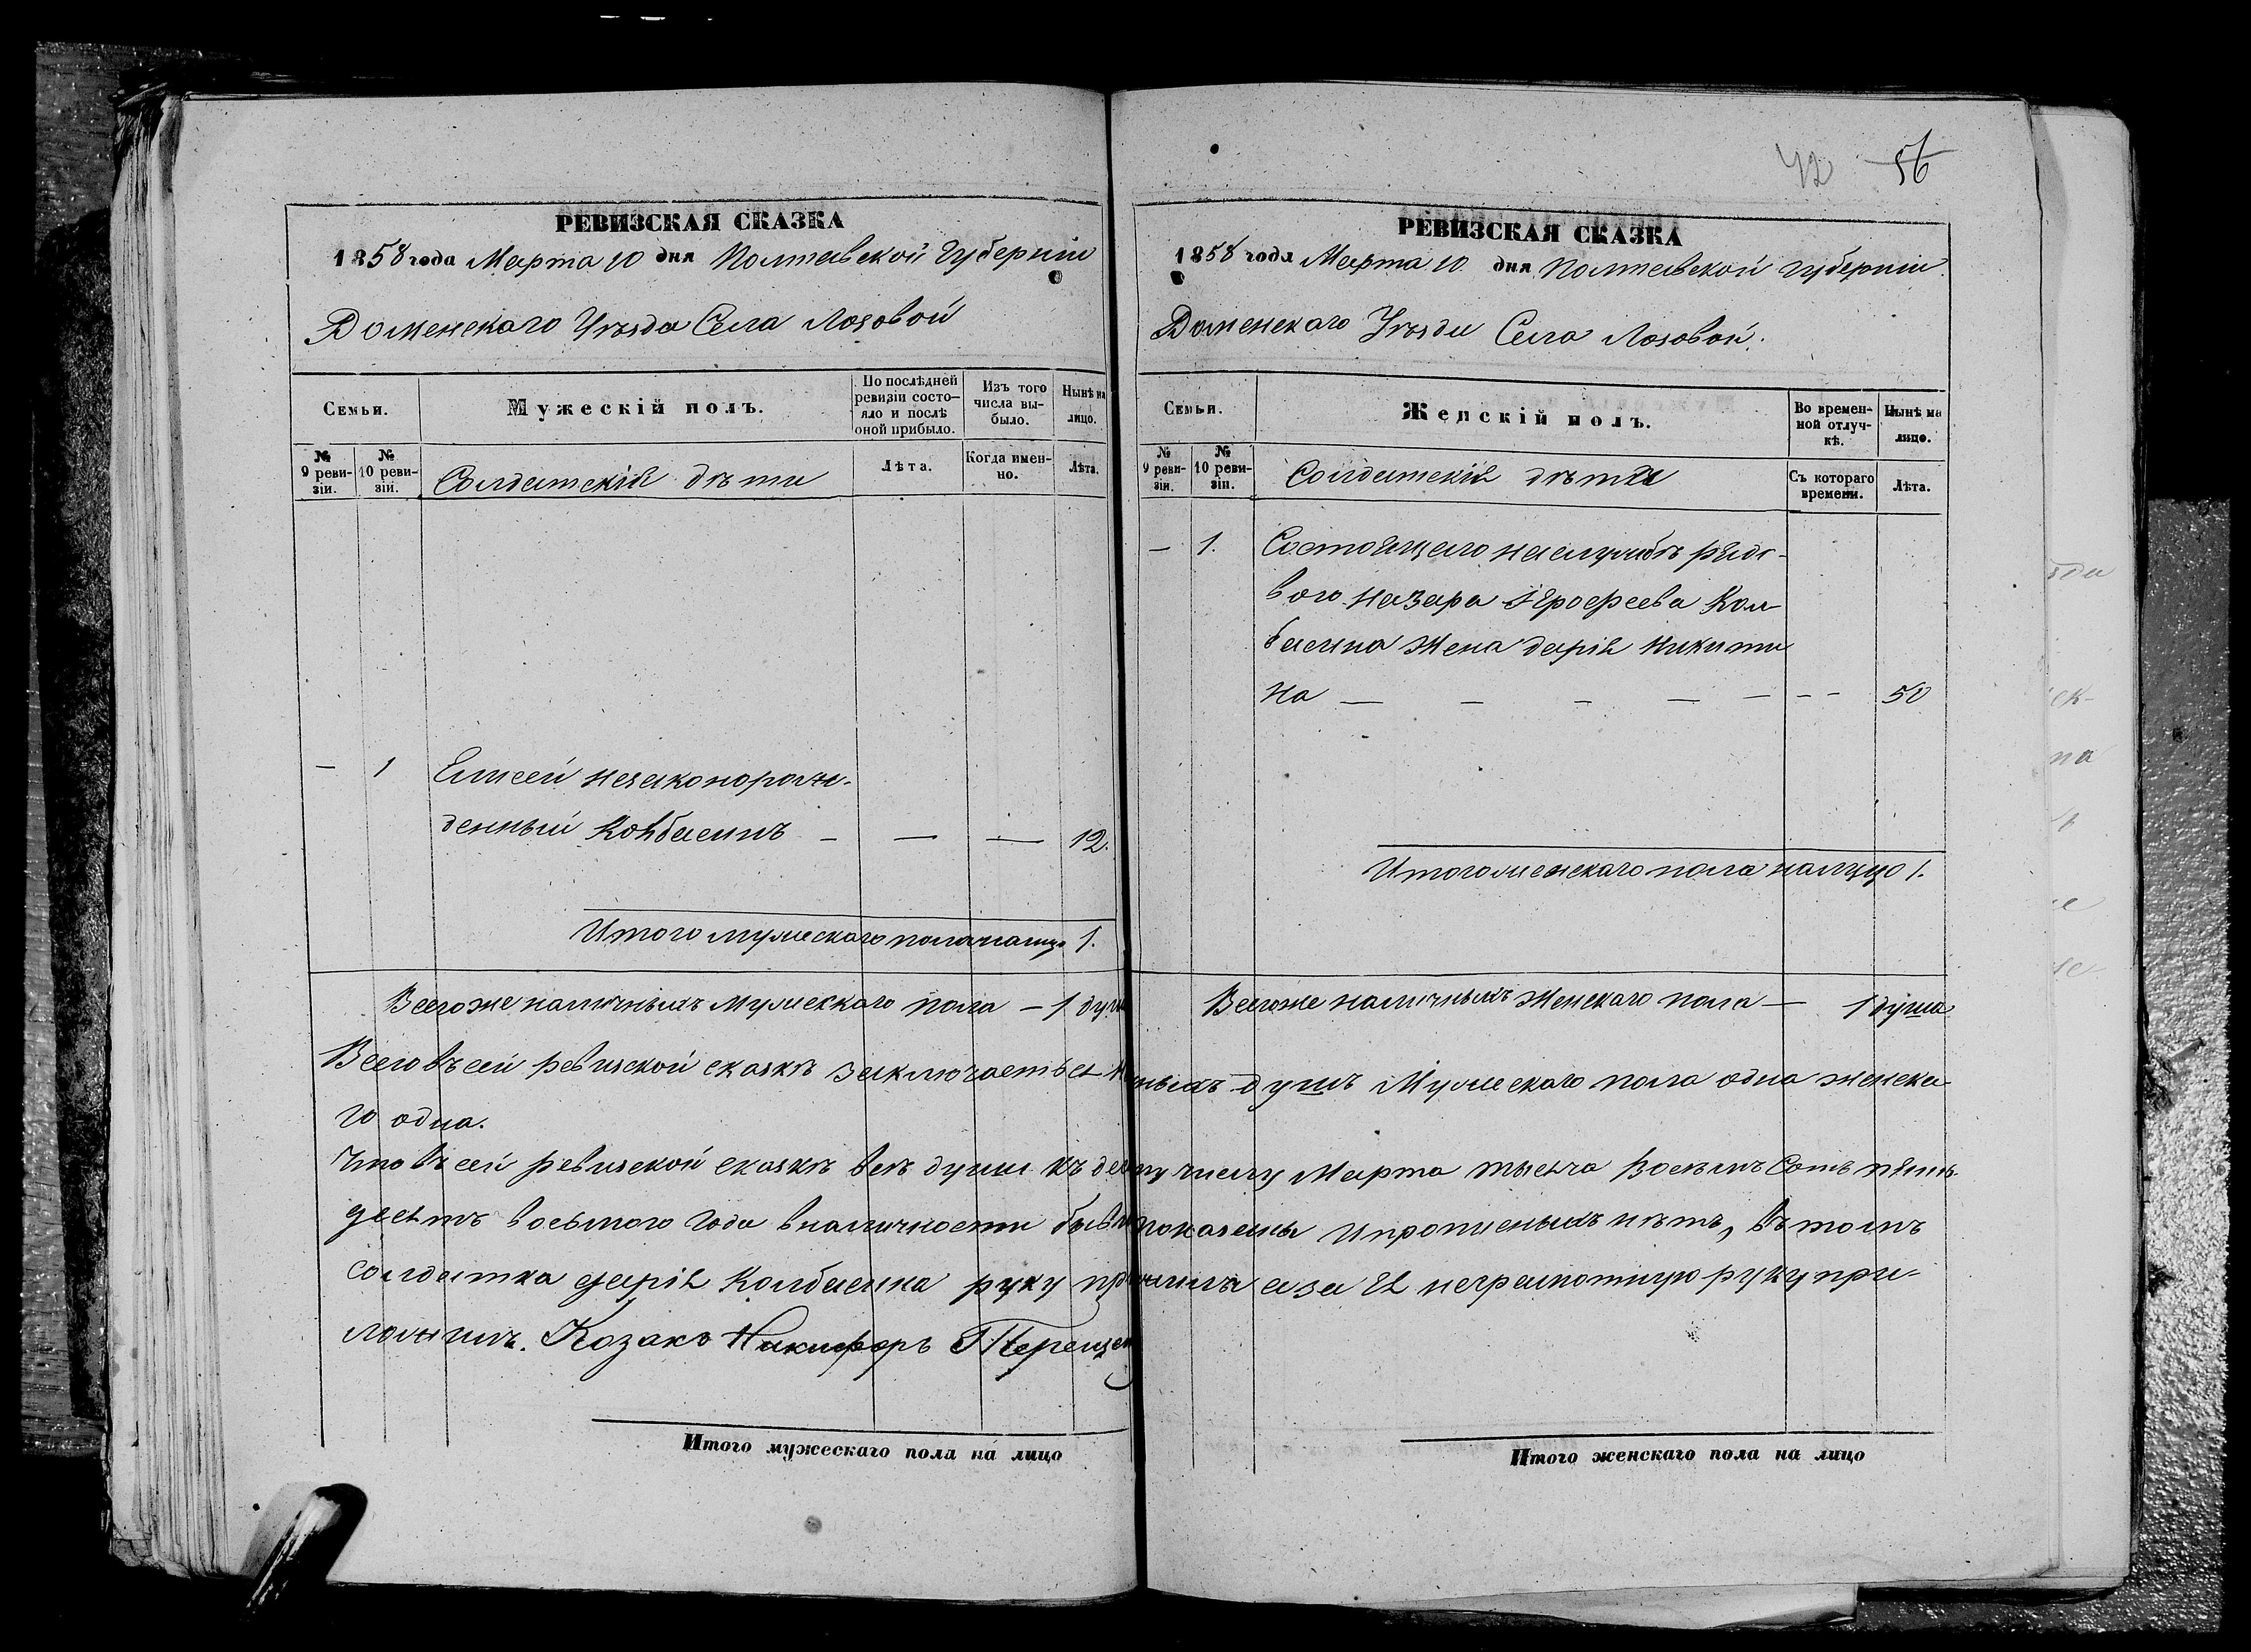 42 56
РЕВИЗСКАЯ СКАЗКА
1858 года Марта 10 дня Полтавской Губерніи
Роменскаго Уѣзда Села Лозовой
Семьи.
Мужескій полъ.
По послѣдней ревизіи состояло и послѣ оной прибыло.
Изъ того числа выбыло.
Нынѣ на лицо.
№ 9 ревизіи.
№ 10 ревизіи.
Солдатскія дѣти
Лѣта.
Когда именно.
Лѣта.
— 1 Елисей незаконорож-
денный Колбасинъ — — — 12.
Итого мужескаго пола налицо 1.
Всего же наличныхъ мужескаго пола — 1
РЕВИЗСКАЯ СКАЗКА
1858 года Марта 10 дня Полтавской Губерніи
Роменскаго Уѣзда Села Лозовой.
Семьи.
Женскій полъ.
Во временной отлучкѣ.
Нынѣ на лицо.
№ 9 ревизіи.
№ 10 ревизіи.
Солдатскія дѣти
Съ котораго времени.
Лѣта.
— 1. Состоящаго наслужбѣ рядо-
вого Назара Ерофеева Кол-
басина Жена Дарія Никити
на — — — — — — — 50
Итого женскаго пола налицо 1.
Всего же наличныхъ Женскаго пола — 1 душа
Всего въ сей ревизской сказкѣ заключается ныхъ душъ Мужескаго пола одна женска
го одна.
Что въ сей ревизской сказкѣ всѣ души къ числу Марта тысяча восемъ сотъ пять
десятъ восьмого Года вналичности бывш показаны ипрописныхъ нѣтъ, въ томъ
солдатка Дарія Колбасина руку а за ея неграмотную руку при-
ложилъ. Козакъ Никифоръ Терещен
Итого мужескаго пола на лицо
Итого женскаго пола на лицо